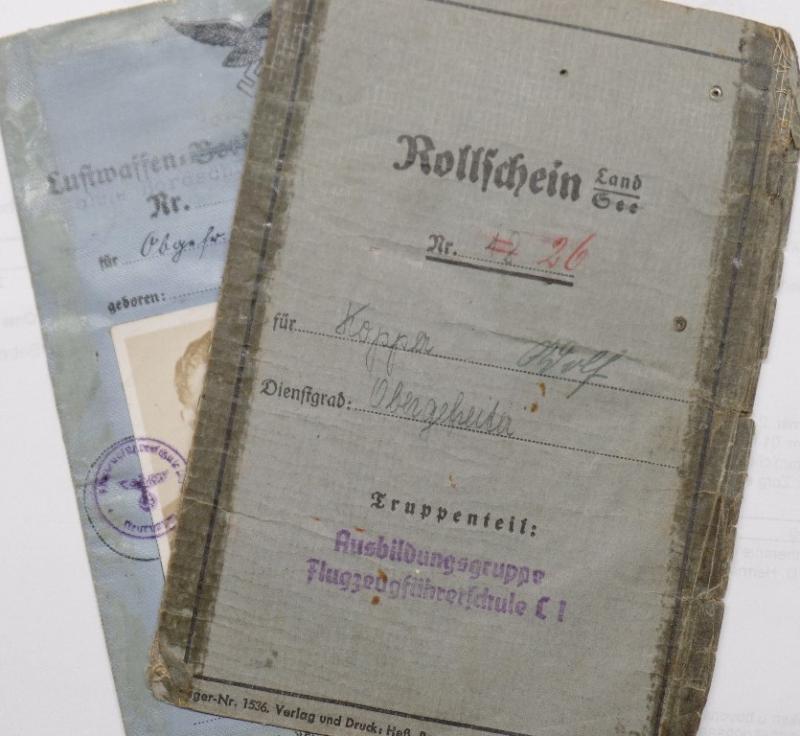 Luftwaffen-
Nr.
für Obgefr.
geboren:
Rollschein Land
See
Nr. 26
für Hopper Adolf
Dienstgrad: Obergefreiter
Truppenteil:
Ausbildungsgruppe
Flugzeugführerschule C 1
ger-Nr. 1536. Verlag und Druck: Heß,